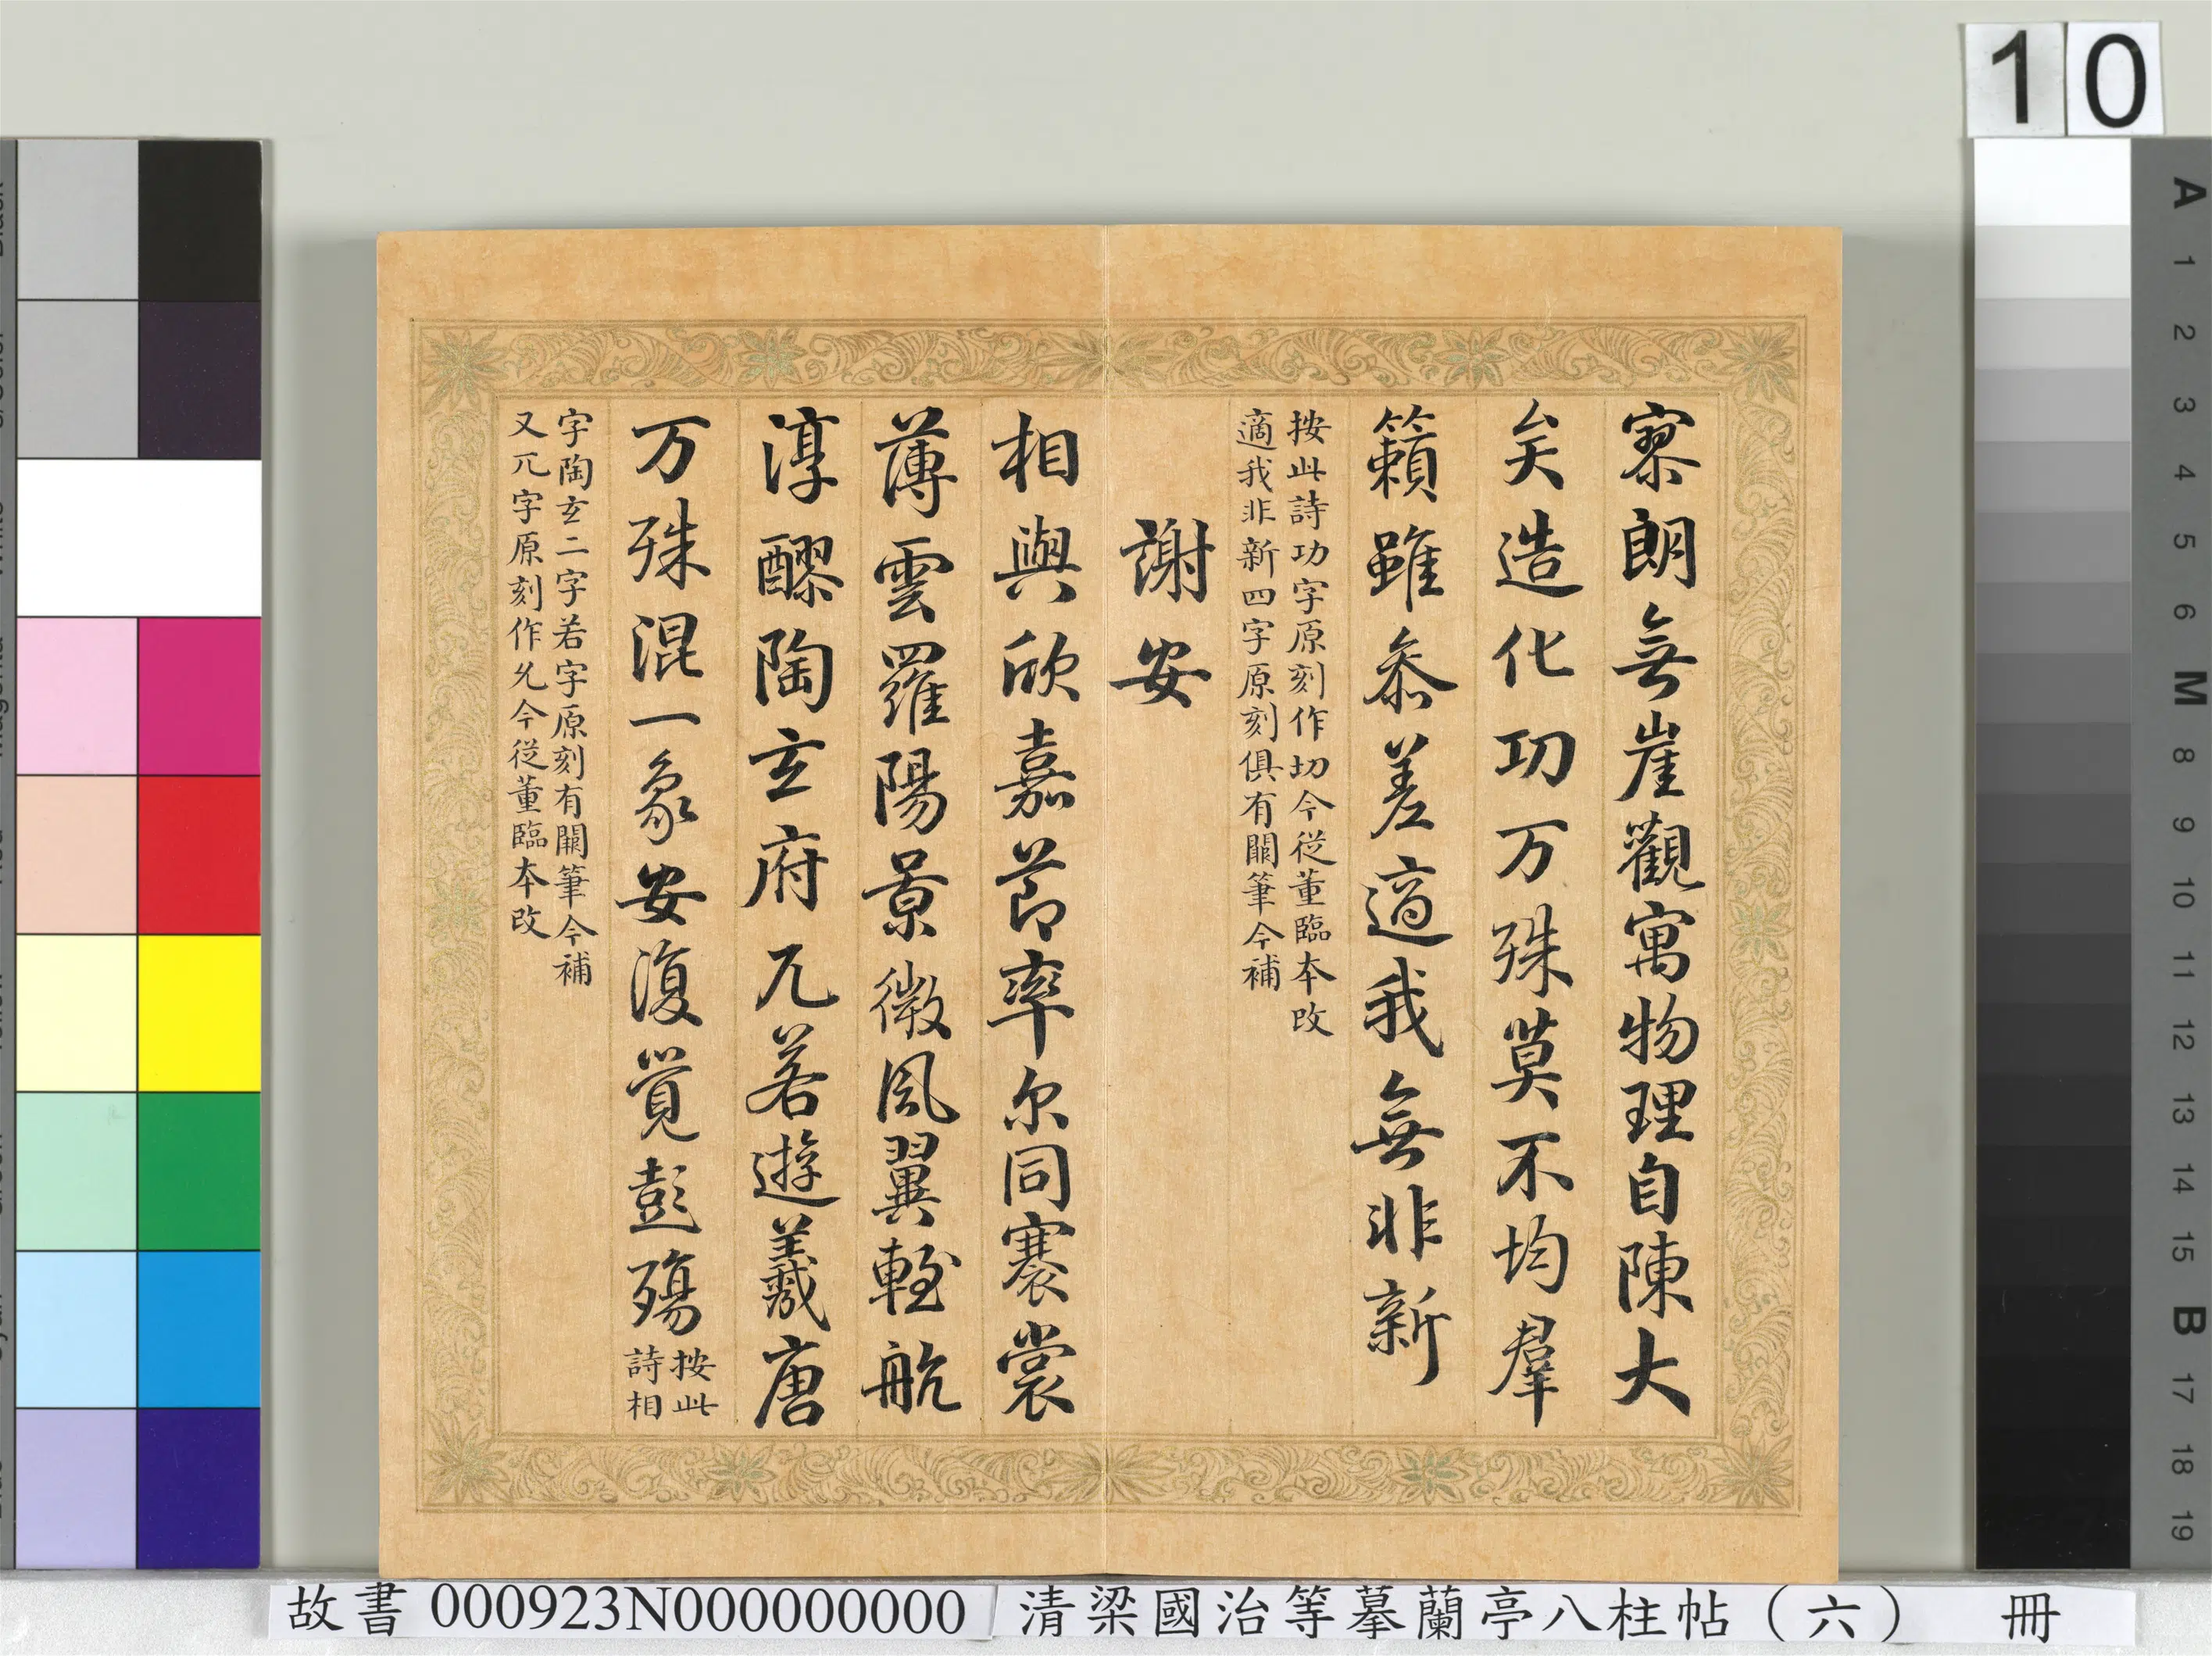 10
寥朗無崖觀寓物理自陳大
矣造化功万殊莫不均羣
籟雖叅差適我無非新
按此詩功字原刻作切今從董臨本改
適我非新四字原刻俱有闕筆今補
謝安
相與欣嘉節率尔同褰裳
薄雲羅陽景微風翼輕航
淳醪陶玄府兀若遊羲唐
万殊混一象安復覺彭殤
按此
詩相
字陶玄二字若字原刻有闕筆今補
又兀字原刻作允今從董臨本改
故書 000923N000000000 清梁國治等摹蘭亭八柱帖（六） 冊
A
1
2
3
4
5
6
M
8
9
10
11
12
13
14
15
B
17
18
19